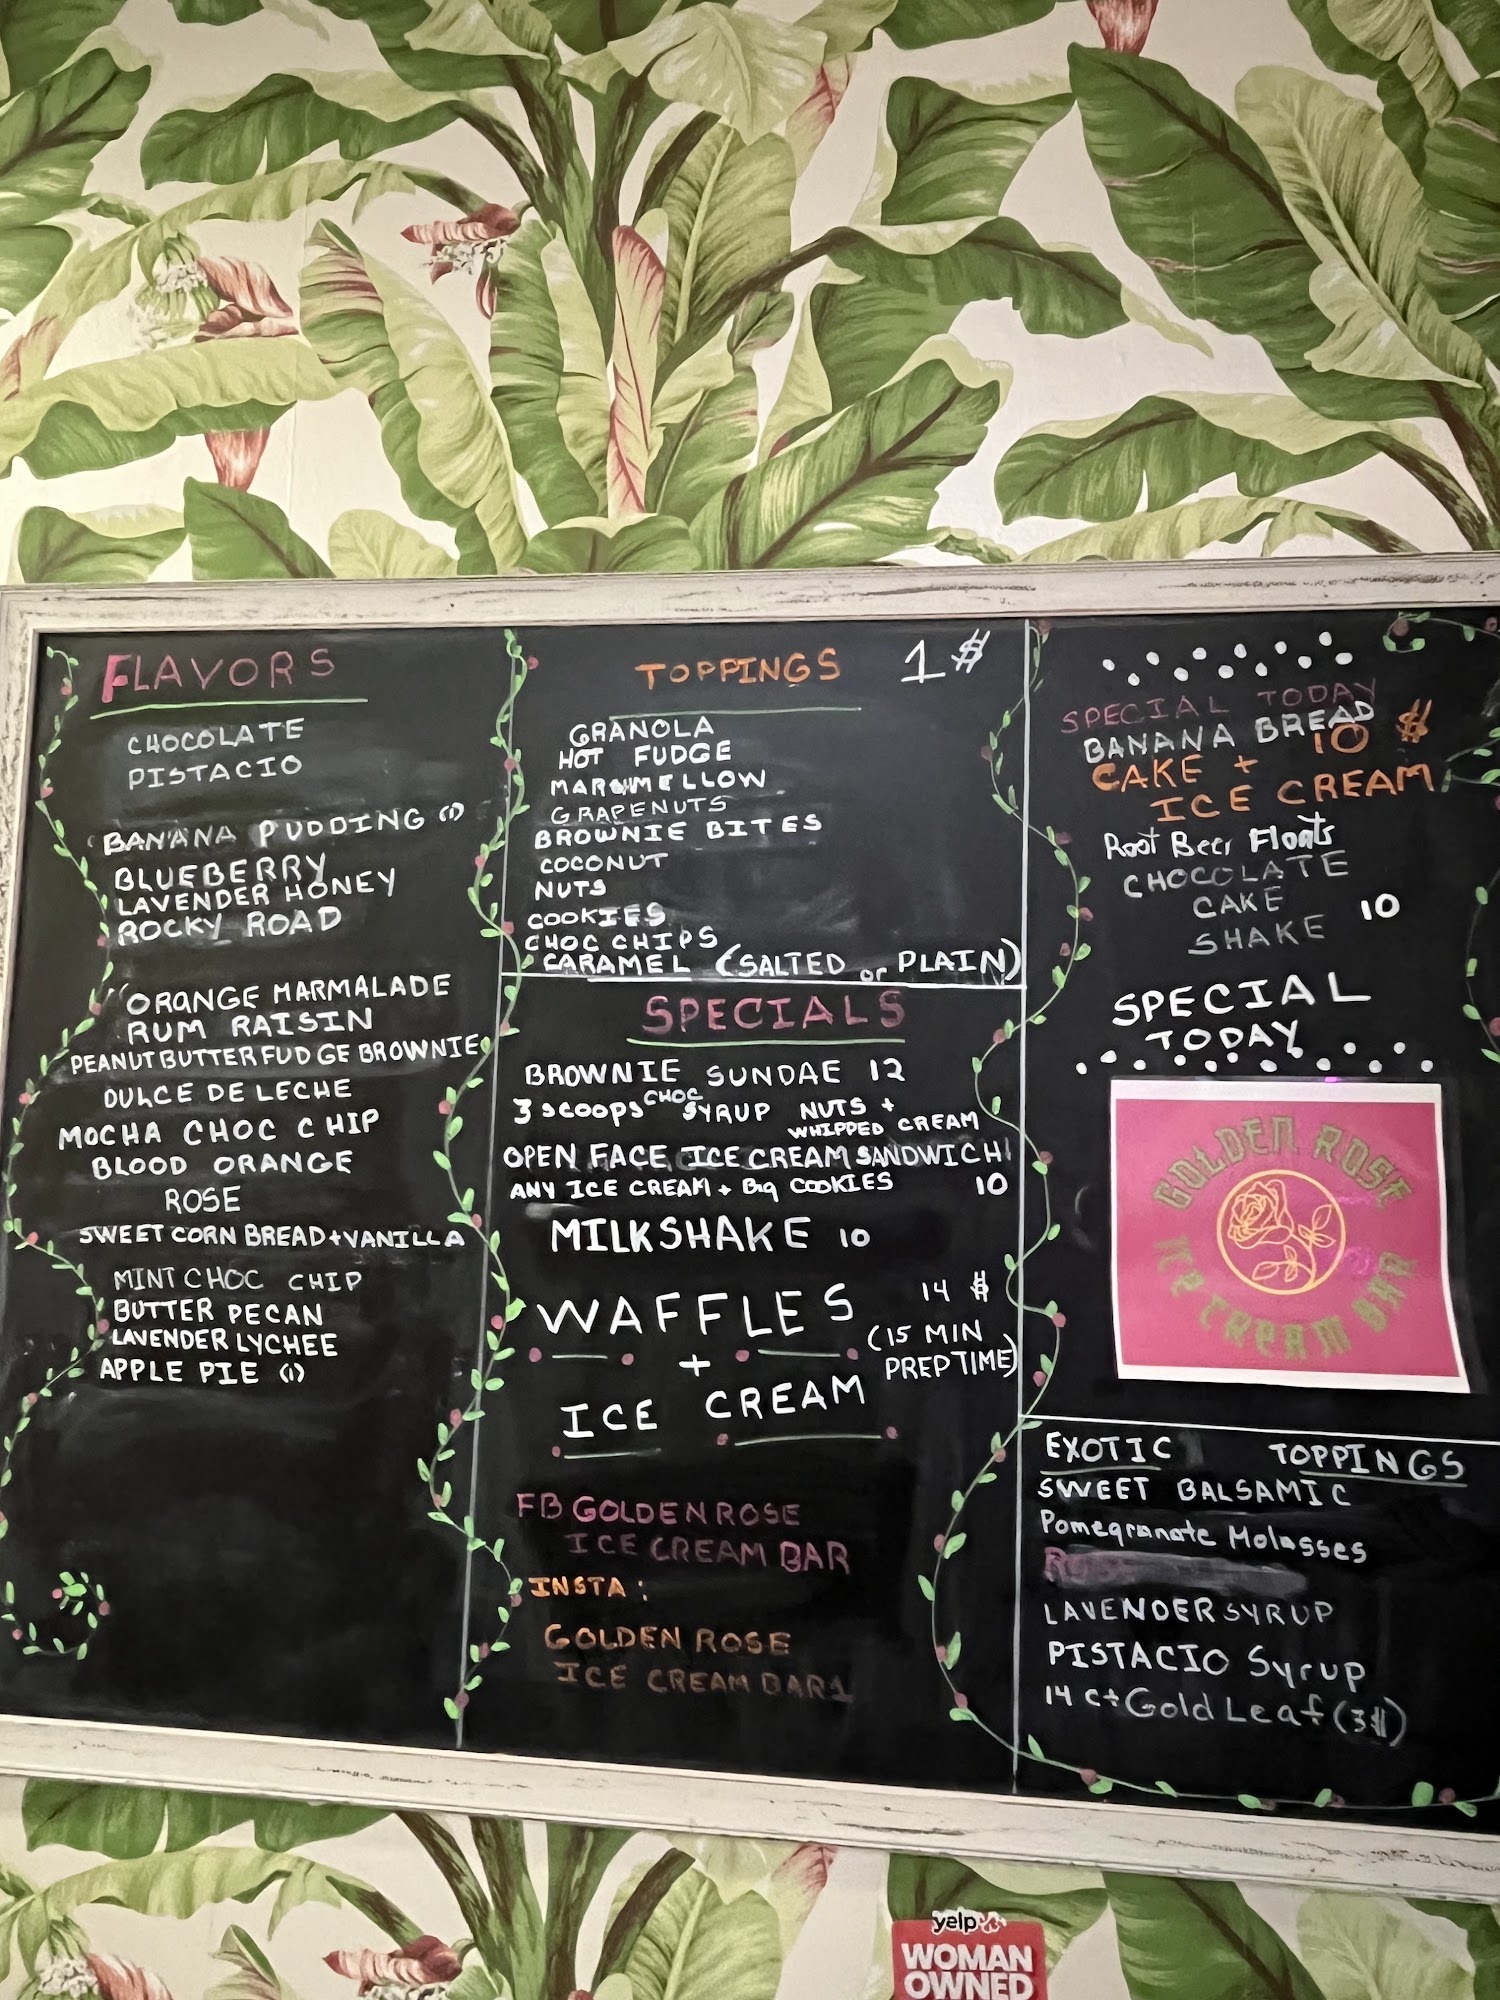 FLAVORS
CHOCOLATE
PISTACIO
BANANA PUDDING (1)
BLUEBERRY
LAVENDER HONEY
ROCKY ROAD
ORANGE MARMALADE
RUM RAISIN
PEANUT BUTTER FUDGE BROWNIE
DULCE DE LECHE
MOCHA CHOC CHIP
BLOOD ORANGE
ROSE
SWEET CORN BREAD + VANILLA
MINT CHOC CHIP
BUTTER PECAN
LAVENDER LYCHEE
APPLE PIE (1)
TOPPINGS 1$
GRANOLA
HOT FUDGE
GRAPENUTS
BROWNIE BITES
COCONUT
NUTS
COOKIES
CHOC CHIPS
CARAMEL (SALTED or PLAIN)
SPECIALS
BROWNIE SUNDAE 12
3 scoops CHOC SYRUP NUTS +
WHIPPED CREAM
OPEN FACE ICE CREAM SANDWICH
ANY ICE CREAM + Big COOKIES 10
MILKSHAKE 10
WAFFLES 14 $
(15 MIN
PREP TIME)
+
ICE CREAM
FB GOLDEN ROSE
ICE CREAM BAR
INSTA:
GOLDEN ROSE
ICE CREAM BAR1
SPECIAL TODAY
BANANA BREAD
CAKE + 10 $
ICE CREAM
Root Beer Floats
CHOCOLATE
CAKE
SHAKE 10
SPECIAL
TODAY
GOLDEN ROSE
ICE CREAM BAR
EXOTIC TOPPINGS
SWEET BALSAMIC
Pomegranate Molasses
LAVENDER SYRUP
PISTACIO Syrup
14 ct Gold Leaf (3$)
yelp
WOMAN
OWNED